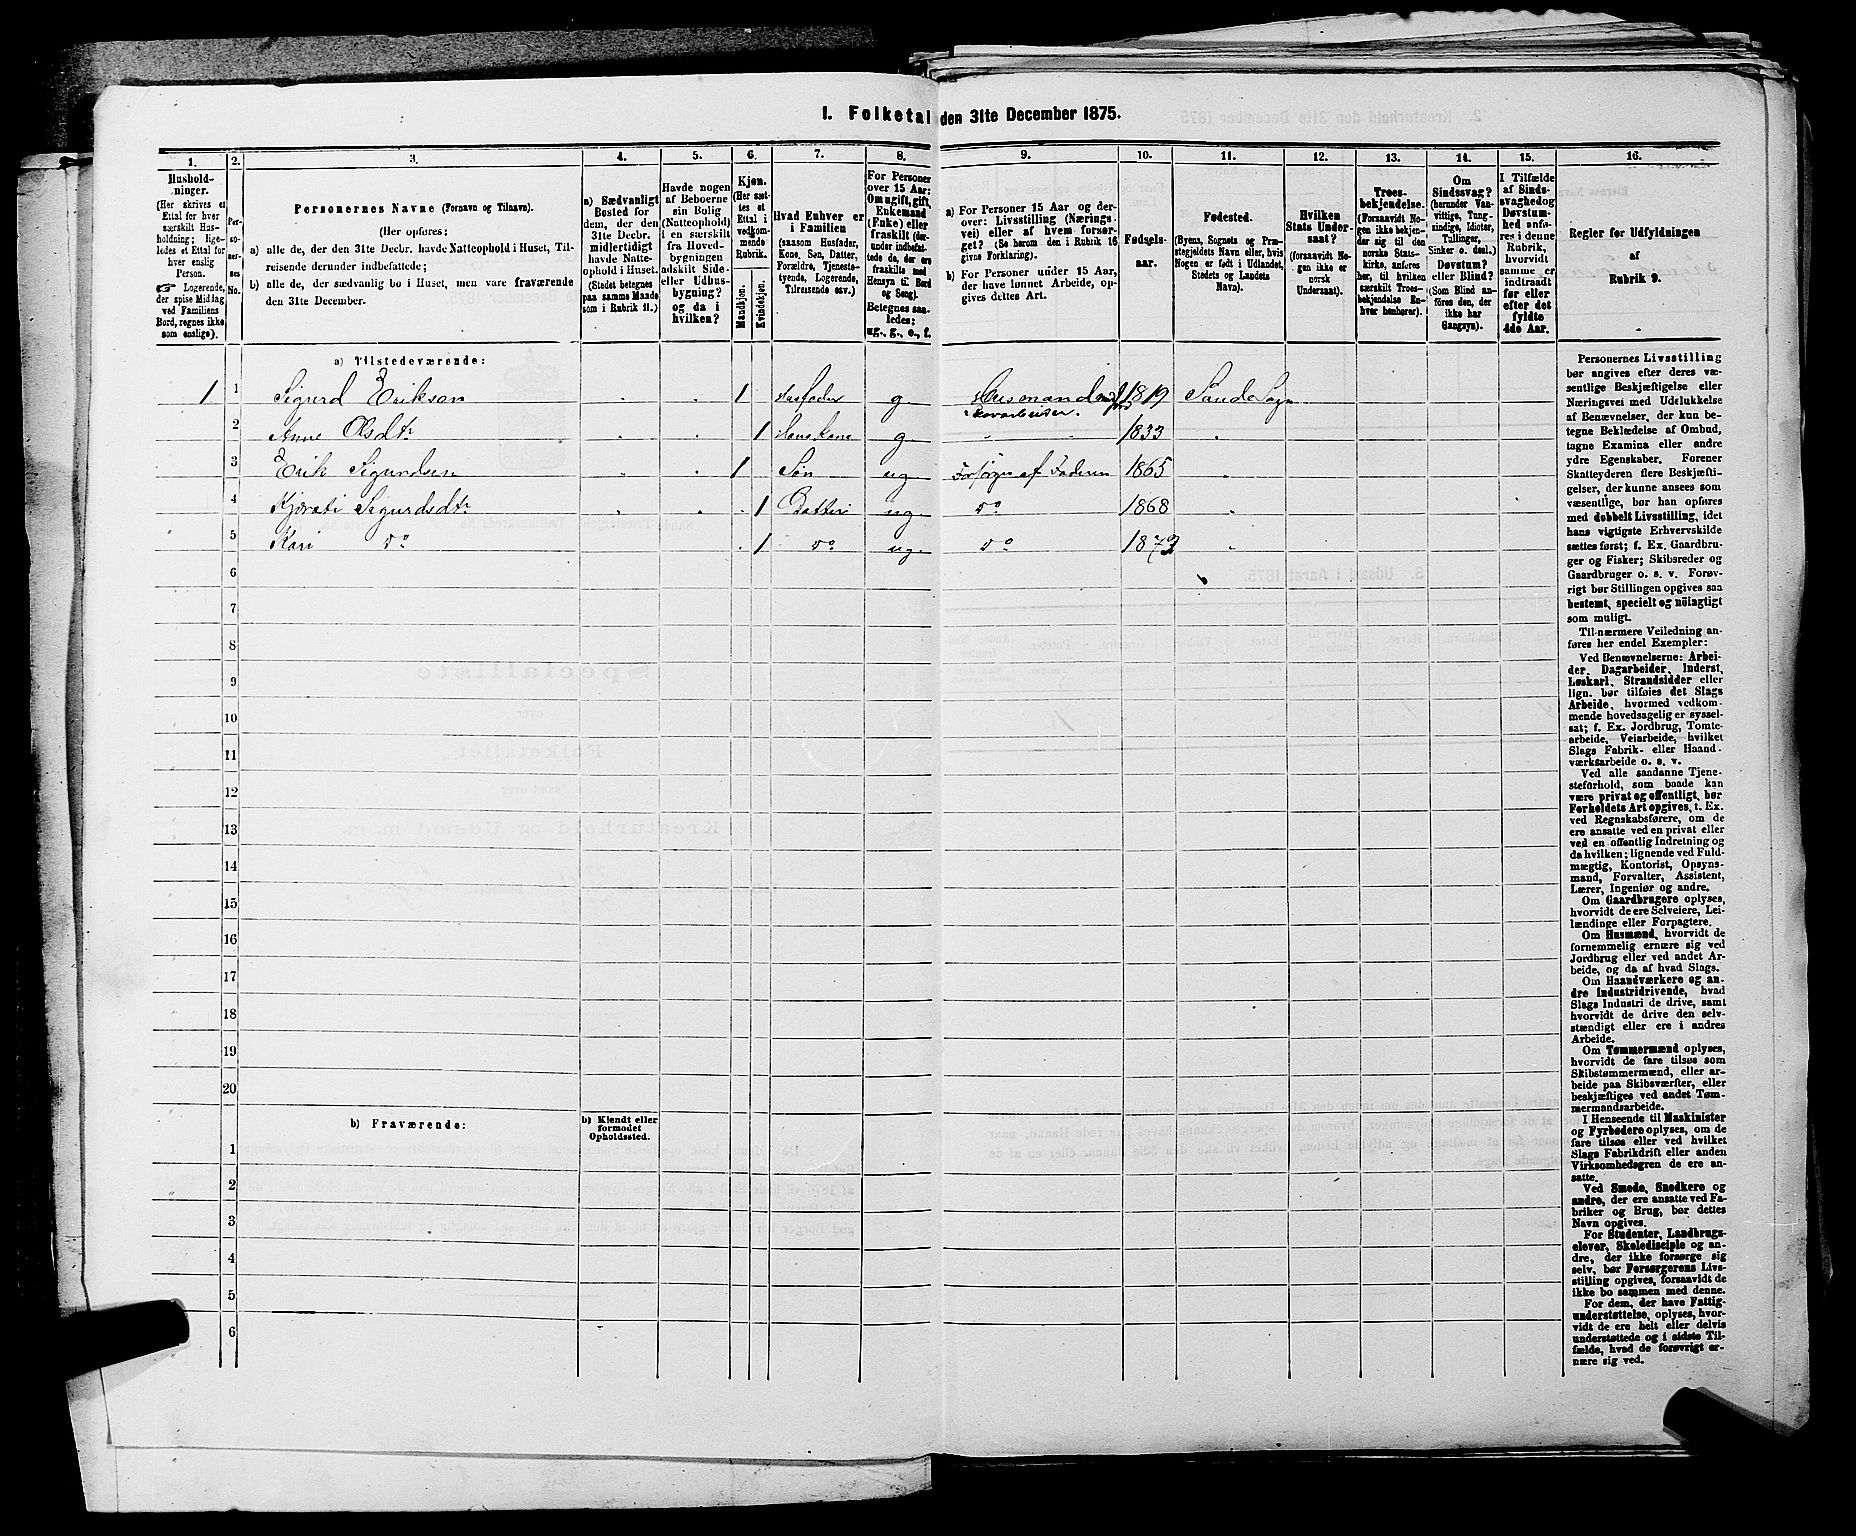 1. Folketal den 31te December 1875.
1. 2. 3. 4. 5. 6. 7. 8. 9. 10. 11. 12. 13. 14. 15. 16.
Hushold-
ninger.
(Her skrives et
Ettal for hver
særskilt Hus-
holdning; lige-
ledes et Ettal for
hver enslig
Person.
☞ Logerende,
der spise Middag
ved Familiens
Bord, regnes ikke
som enslige).
Per-
so-
ner-
nes
No.
Personernes Navne (Fornavn og Tilnavn).
(Her opføres:
a) alle de, der den 31te Decbr. havde Natteophold i Huset, Til-
reisende derunder indbefattede;
b) alle de, der sædvanlig bo i Huset, men vare fraværende
den 31te December.
a) Sædvanligt
Bosted for
dem, der den
31te Decbr.
midlertidigt
havde Natte-
ophold i Huset.
(Stedet betegnes
paa samme Maade
som i Rubrik 11.)
Havde nogen
af Beboerne
sin Bolig
(Natteophold)
i en særskilt
fra Hoved-
bygningen
adskilt Side-
eller Udhus-
bygning?
og da i
hvilken?
Kjøn.
(Her sæt-
tes et
Ettal i
vedkom-
mende
Rubrik.
Mandkjøn.
Kvindekjøn.
Hvad Enhver er
i Familien
(saasom Husfader,
Kone, Søn, Datter,
Forældre, Tjeneste-
tyende, Logerende,
Tilreisende osv.)
For Personer
over 15 Aar:
Om ugift, gift,
Enkemand
(Enke) eller
fraskilt (der-
under indbefat-
tede de, der ere
fraskilte med
Hensyn til Bord
og Seng).
Betegnes saa-
ledes:
ug., g., e., f.
a) For Personer 15 Aar og der-
over: Livsstilling (Nærings-
vei) eller af hvem forsør-
get? (Se herom den i Rubrik 16
givne Forklaring).
b) For Personer under 15 Aar,
der have lønnet Arbeide, op-
gives dettes Art.
Fødsels-
aar.
Fødested.
(Byens, Sognets og Præ-
stegjeldets Navn eller, hvis
Nogen er født i Udlandet,
Stedets og Landets
Navn).
Hvilken
Stats Under-
saat?
(forsaavidt No-
gen ikke er
norsk
Undersaat).
Troes-
bekjendelse.
(Forsaavidt No-
gen ikke bekjen-
der sig til den
norske Stats-
kirke, anføres
her, til hvilken
særskilt Troes-
bekjendelse En-
hver henhører).
Om
Sindssvag?
(herunder Van-
vittige, Tung-
sindige, Idioter,
Tullinger,
Sinker o. desl.)
Døvstum?
eller Blind?
(Som Blind an-
føres den, der
ikke har
Gangsyn).
I Tilfælde
af Sinds-
svaghed og
Døvstum-
hed anfø-
res i denne
Rubrik,
hvorvidt
samme er
indtraadt
før eller
efter det
fyldte
4de Aar.
Regler for Udfyldningen
af
Rubrik 9.
a) Tilstedeværende:
1 1 Sigurd Eriksen 1 Husfader g. Husmand med Jord 1819 Sande Sogn
Skovarbeider.
2 Anne Olsdtr " " 1 Hans Kone g. " " 1833 "
3 Erik Sigurdsen " " 1 Søn ug. Forsørges af Faderen 1865 "
4 Kjersti Sigurdsdtr " " 1 Datter ug. Do 1868 "
5 Kari Do 1 Do ug. Do 1873 "
6
7
8
9
10
11
12
13
14
15
16
17
18
19
20
b) Fraværende:
b) Kjendt eller
formodet
Opholdssted.
1
2
3
4
5
6
Personernes Livsstilling
bør angives efter deres væ-
sentlige Beskjæftigelse eller
Næringsvei med Udelukkelse
af Benævnelser, der kun be-
tegne Beklædelse af Ombud,
tagne Examina eller andre
ydre Egenskaber. Forener
Skatteyderen flere Beskjæfti-
gelser, der kunne ansees som
væsentlige, bør han opføres
med dobbelt Livsstilling, idet
hans vigtigste Erhvervskilde
sættes først; f. Ex. Gaardbru-
ger og Fisker; Skibsreder og
Gaardbruger o. s. v. Forøv-
rigt bør Stillingen opgives saa
bestemt, specielt og nøiagtigt
som muligt.
Til nærmere Veiledning an-
føres her endel Exempler:
Ved Benævnelserne: Arbei-
der, Dagarbeider, Inderst,
Løskarl, Strandsidder eller
lign. bør tilføies det Slags
Arbeide, hvormed vedkom-
mende hovedsagelig er syssel-
sat; f. Ex. Jordbrug, Tomte-
arbeide, Veiarbeide, hvilket
Slags Fabrik- eller Haand-
værksarbeide o. s. v.
Ved alle saadanne Tjene-
steforhold, som baade kan
være privat og offentligt, bør
Forholdets Art opgives, t. Ex.
ved Regnskabsførere, om de
ere ansatte ved en privat eller
ved en offentlig Indretning og
da hvilken; lignende ved Fuld-
mægtig, Kontorist, Opsyns-
mand, Forvalter, Assistent,
Lærer, Ingeniør og andre.
Om Gaardbrugere oplyses,
hvorvidt de ere Selveiere, Lei-
lændinge eller Forpagtere.
Om Husmænd, hvorvidt de
fornemmelig ernære sig ved
Jordbrug eller ved andet Ar-
beide, og da af hvad Slags.
Om Haandværkere og an-
dre Industridrivende, hvad
Slags Industri de drive, samt
hvorvidt de drive den selv-
stændigt eller ere i andres
Arbeide.
Om Tømmermænd oplyses,
hvorvidt de fare tilsøs som
Skibstømmermænd, eller ar-
beide paa Skibsværfter, eller
beskjæftiges ved andet Tøm-
mermandsarbeide.
I Henseende til Maskinister
og Fyrbødere oplyses, om de
fare tilsøs eller ved hvilket
Slags Fabrikdrift eller anden
Virksomhedsgren de ere an-
satte.
Ved Smede, Snedkere og
andre, der ere ansatte ved Fa-
briker og Brug, bør dettes
Navn opgives.
For Studenter, Landbrugs-
elever, Skoledisciple og an-
dre, der ikke forsørge sig
selv, bør Forsørgerens Livs-
stilling opgives, forsaavidt de
ikke bo sammen med denne.
For dem, der have Fattig-
understøttelse, oplyses, hvor-
vidt de ere helt eller delvis
understøttede og i sidste Til-
fælde, hvad de forøvrigt er-
nære sig ved.